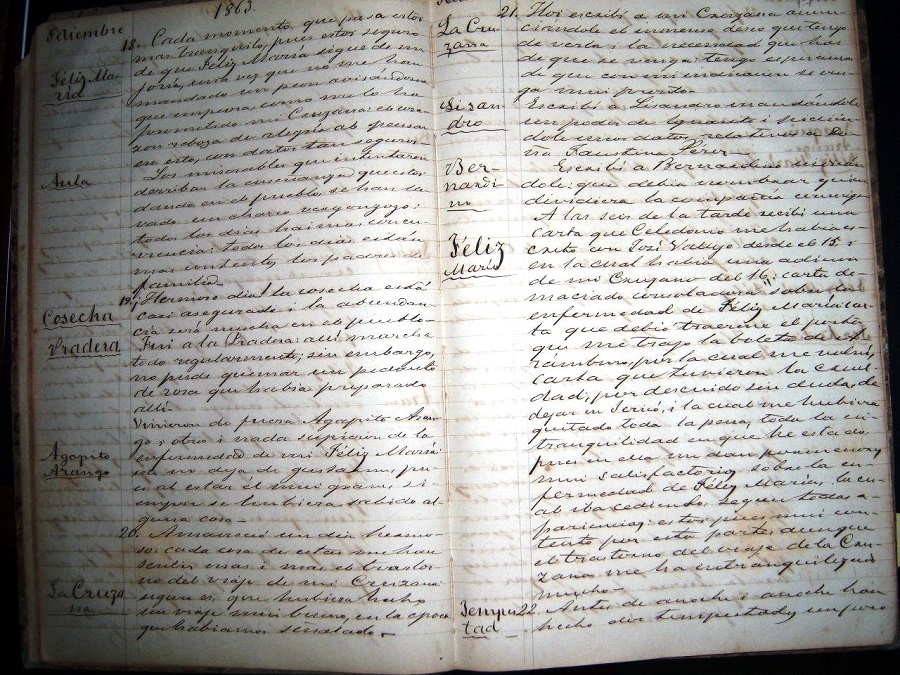 1863.
Setiembre
18. Cada momento que pasa estoi
mas tranquilo, pues estoi seguro
Féliz Ma-
ría
de que Féliz María sigue de me-
joría, una vez que no me han
mandado un peon avisándome
que empeora como me lo ha
prometido mi Cruzana: el cora-
zon rebosa de alegría al pensar
en esto, con datos tan seguros.
Aula
Los miserables que intentaron
derribar la enseñanza que estoi
dando en el pueblo se han lle-
vado un chasco vergonzozo:
todos los dias hai mas concu-
rrencia: todos los dias están
mas contentos los padres de
familia.
Cosecha
19. Hermoso dia! la cosecha está
casi asegurada i la abundan-
cia será mucha en el pueblo.
Pradera
Fuí a la Pradera: allí marcha
todo regularmente; sin embargo,
no pude quemar un pedacito
de rosa que habia preparado
allí.
Agapito
Arango
Vinieron de fuera Agapito Aran-
go i otro i nada supieron de la
enfermedad de mi Féliz María
no deja de gustarme, pu
al estar él mui grave, si
empre se hubiera sabido al-
guna cosa.
20. Amaneció un dia hermo-
so: cada cosa de estas me hace
sentir mas i mas el trastor-
La Cruza
na
no del viaje de mi Cruzana
seguro es, que hubiera hecho
un viaje mui bueno, en la época
que habiamos señalado.
La Cru-
zana
21. Hoi escribí a mi Cruzana anun-
ciándole el inmenso deseo que tengo
de verla i la necesidad que hai
de que se venga: tengo esperanza
de que con mi indicacion se ven-
ga mui pronto.
Lisan
dro
Escribí a Lisandro mandándole
un poder de i pidién-
dole unos datos relativos a
Faustina Pérez.
Ber-
nardi
no
Escribí a Bernardino
dole: que debia nombrar quien
dividiera la compañía conmigo
Féliz
María
A las seis de la tarde recibí una
carta que Celedonio me habia es-
crito con José Vallejo desde el 15:
en la cual habia una adicion
de mi Cruzana del 16: carta de-
maciado consoladora sobre la
enfermedad de Féliz María: car-
ta que debió traerme el peon
que me trajo la boleta de A-
rámburo, por la cual me volví,
carta que tuvieron la cruel-
dad, por descuido sin duda, de
dejar en Sonson, i la cual me hubiera
quitado toda la pena, toda la in-
tranquilidad en que he estado
pues en ella me dan pormenores
mui satisfactorios sobre la en-
fermedad de Féliz María, la cu-
al iba cediendo, segun todas a-
pariencias: estoi pues mui con-
tento por esta parte, aunque
el trastorno del viaje de la Cru-
zana me ha intranquilizado
mucho.
Tempes
tad
22. Antes de anoche i anoche han
hecho dos tempestades, empero